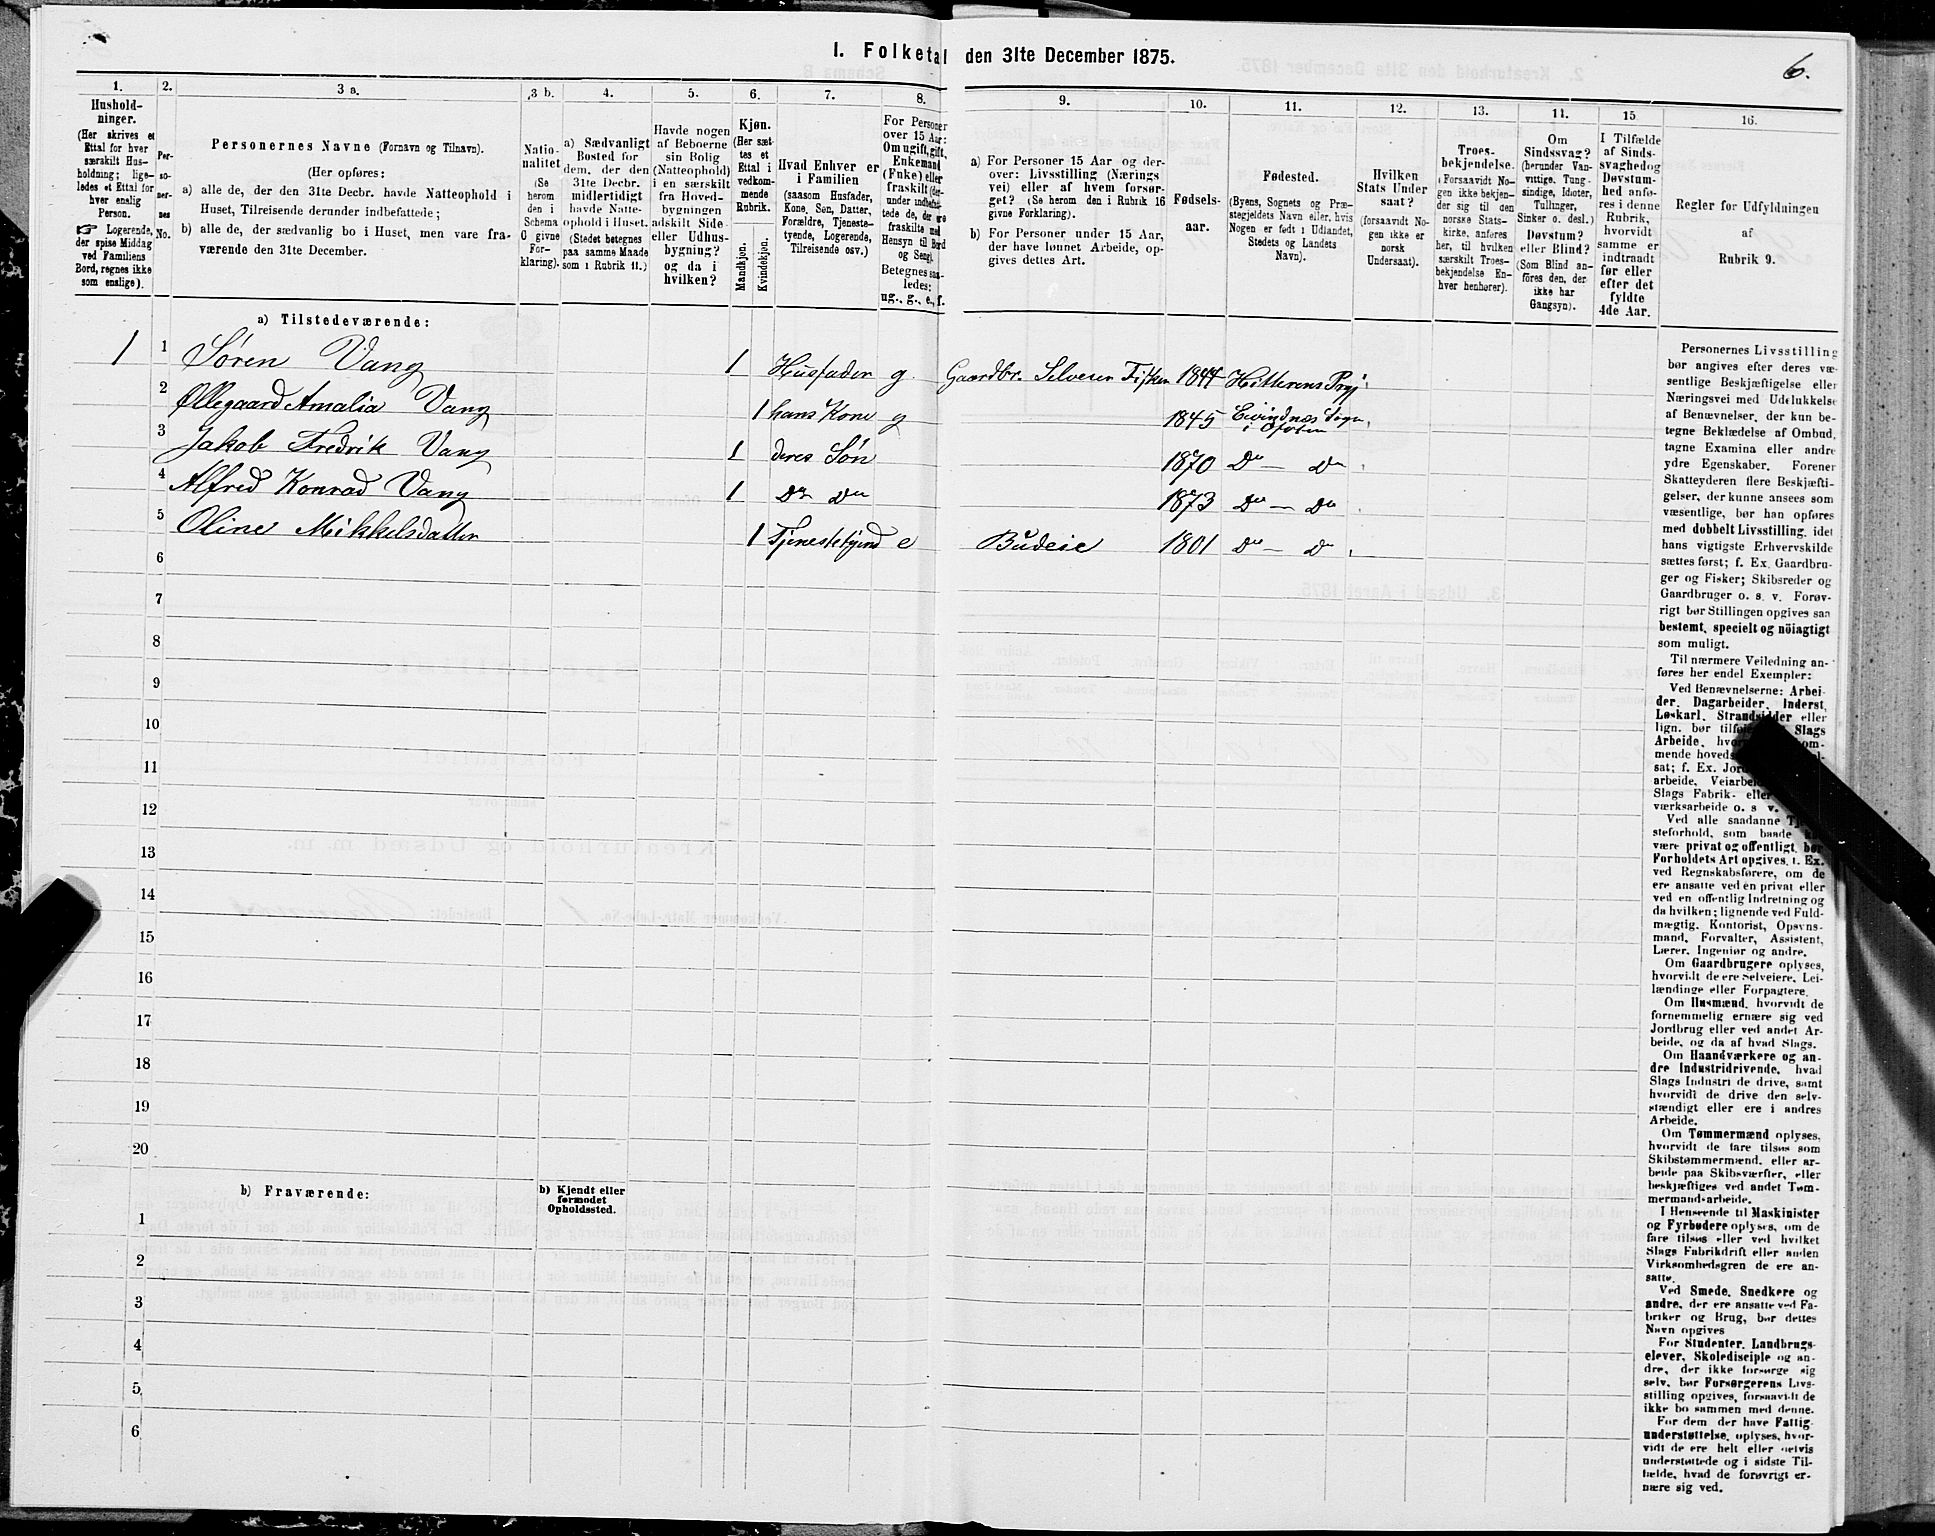 I. Folketal den 31te December 1875.
6.
1. 2. 3 a. 3 b. 4. 5. 6. 7. 8. 9. 10. 11. 12. 13. 14. 15 16.
Hushold-
ninger.
(Her skrives et
Ettal for hver
særskilt Hus-
holdning; lige-
ledes et Ettal for
hver enslig
Person.
☞ Logerende,
der spise Middag
ved Familiens
Bord, regnes ikke
som enslige).
Per-
so-
ner-
nes
No.
Personernes Navne (Fornavn og Tilnavn).
(Her opføres:
a) alle de, der den 31te Decbr. havde Natteophold i
Huset, Tilreisende derunder indbefattede;
b) alle de, der sædvanlig bo i Huset, men vare fra-
værende den 31te December.
Natio-
nalitet
(Se
herom
den i
Schema
O givne
For-
klaring).
a) Sædvanligt
Bosted for
dem, der den
31te Decbr.
midlertidigt
havde Natte-
ophold i Huset.
(Stedet betegnes
paa samme Maade
som i Rubrik 11.)
Havde nogen
af Beboerne
sin Bolig
(Natteophold)
i en særskilt
fra Hoved-
bygningen
adskilt Side-
eller Udhus-
bygning?
og da i
hvilken?
Kjøn.
(Her sæt-
tes et
Ettal i
vedkom-
mende
Rubrik.
Mandkjøn.
Kvindekjøn.
Hvad Enhver er
i Familien
(saasom Husfader,
Kone, Søn, Datter,
Forældre, Tjeneste-
tyende, Logerende,
Tilreisende osv.)
For Personer
over 15 Aar:
Om ugift, gift,
Enkemand
(Enke) eller
fraskilt (der-
under indbefat-
tede de, der ere
fraskilte med
Hensyn til Bord
og Seng).
Betegnes saa-
ledes:
ug., g., e., f.
a) For Personer 15 Aar og der-
over: Livsstilling (Nærings
vei) eller af hvem forsør-
get? (Se herom den i Rubrik 16
givne Forklaring).
b) For Personer under 15 Aar,
der have lønnet Arbeide, op-
gives dettes Art.
Fødsels-
aar.
Fødested.
(Byens, Sognets og Præ-
stegjeldets Navn eller, hvis
Nogen er født i Udlandet,
Stedets og Landets
Navn).
Hvilken
Stats Under
saat?
(forsaavidt No-
gen ikke er
norsk
Undersaat).
Troes-
bekjendelse.
(Forsaavidt No-
gen ikke bekjen-
der sig til den
norske Stats-
kirke, anføres
her, til hvilken
særskilt Troes-
bekjendelse En-
hver henhører).
Om
Sindssvag?
(herunder Van-
vittige, Tung-
sindige, Idioter,
Tullinger,
Sinker o. desl.)
Døvstum?
eller Blind?
(Som Blind an-
føres den, der
ikke har
Gangsyn).
I Tilfælde
af Sinds-
svaghed og
Døvstum-
hed anfø-
res i denne
Rubrik,
hvorvidt
samme er
indtraadt
før eller
efter det
fyldte
4de Aar.
Regler for Udfyldningen
af
Rubrik 9.
a) Tilstedeværende:
1 1 Søren Vang 1 Husfader g Gaardbr. Selveier Fisker 1844 Hitterens Prgj.
2 Øllegaard Amalia Vang 1 hans Kone g 1845 Evindnæs Sogn,
i Ofoten
3 Jakob Fredrik Vang 1 deres Søn 1870 Do — Do
4 Alfred Konrad Vang 1 Do Do 1873 Do — Do
5 Oline Mikkelsdatter 1 Tjenestetyend e Budeie 1801 Do — Do
6
7
8
9
10
11
12
13
14
15
16
17
18
19
20
b) Fraværende:
b) Kjendt eller
formodet
Opholdssted.
1
2
3
4
5
6
Personernes Livsstilling
bør angives efter deres væ-
sentlige Beskjæftigelse eller
Næringsvei med Udelukkelse
af Benævnelser, der kun be-
tegne Beklædelse af Ombud,
tagne Examina eller andre
ydre Egenskaber. Forener
Skatteyderen flere Beskjæfti-
gelser, der kunne ansees som
væsentlige, bør han opføres
med dobbelt Livsstilling, idet
hans vigtigste Erhvervskilde
sættes først; f. Ex. Gaardbru-
ger og Fisker; Skibsreder og
Gaardbruger o. s. v. Forøv-
rigt bør Stillingen opgives saa
bestemt, specielt og nöiagtigt
som muligt.
Til nærmere Veiledning an-
føres her endel Exempler:
Ved Benævnelserne: Arbei-
der, Dagarbeider, Inderst,
Løskarl, Strandsidder eller
lign. bør Slags
Arbeide,
mende
sat; f. Ex.
arbeide,
Slags Fabrik- eller
værksarbeide o. s. v.
Ved alle saadanne
steforhold, som baade
være privat og offentligt, bør
Forholdets Art opgives, f. Ex.
ved Regnskabsførere, om de
ere ansatte ved en privat eller
ved en offentlig Indretning og
da hvilken; lignende ved Fuld-
mægtig, Kontorist, Opsyns-
mand, Forvalter, Assistent,
Lærer, Ingeniør og andre.
Om Gaardbrugere oplyses,
hvorvidt de ere Selveiere, Lei-
lændinge eller Forpagtere.
Om Husmænd, hvorvidt de
fornemmelig ernære sig ved
Jordbrug eller ved andet Ar-
beide, og da af hvad Slags.
Om Haandværkere og an-
dre Industridrivende, hvad
Slags Industri de drive, samt
hvorvidt de drive den selv-
stændigt eller ere i andres
Arbeide.
Om Tømmermænd oplyses,
hvorvidt de fare tilsøs som
Skibstømmermænd, eller ar-
beide paa Skibsværfter, eller
beskjæftiges ved andet Tøm-
mermandsarbeide.
I Henseende til Maskinister
og Fyrbødere oplyses, om de
fare tilsøs eller ved hvilket
Slags Fabrikdrift eller anden
Virksomhedsgren de ere an-
satte.
Ved Smede, Snedkere og
andre, der ere ansatte ved Fa-
briker og Brug, bør dettes
Navn opgives
For Studenter, Landbrugs-
elever, Skoledisciple og an-
dre, der ikke forsørge sig
selv, bør Forsørgerens Livs-
stilling opgives, forsaavidt de
ikke bo sammen med denne.
For dem der have Fattig-
understøttelse, oplyses, hvor-
vidt de ere helt eller delvis
understøttede og i sidste Til-
fælde, hvad de forøvrigt er-
nære sig ved.